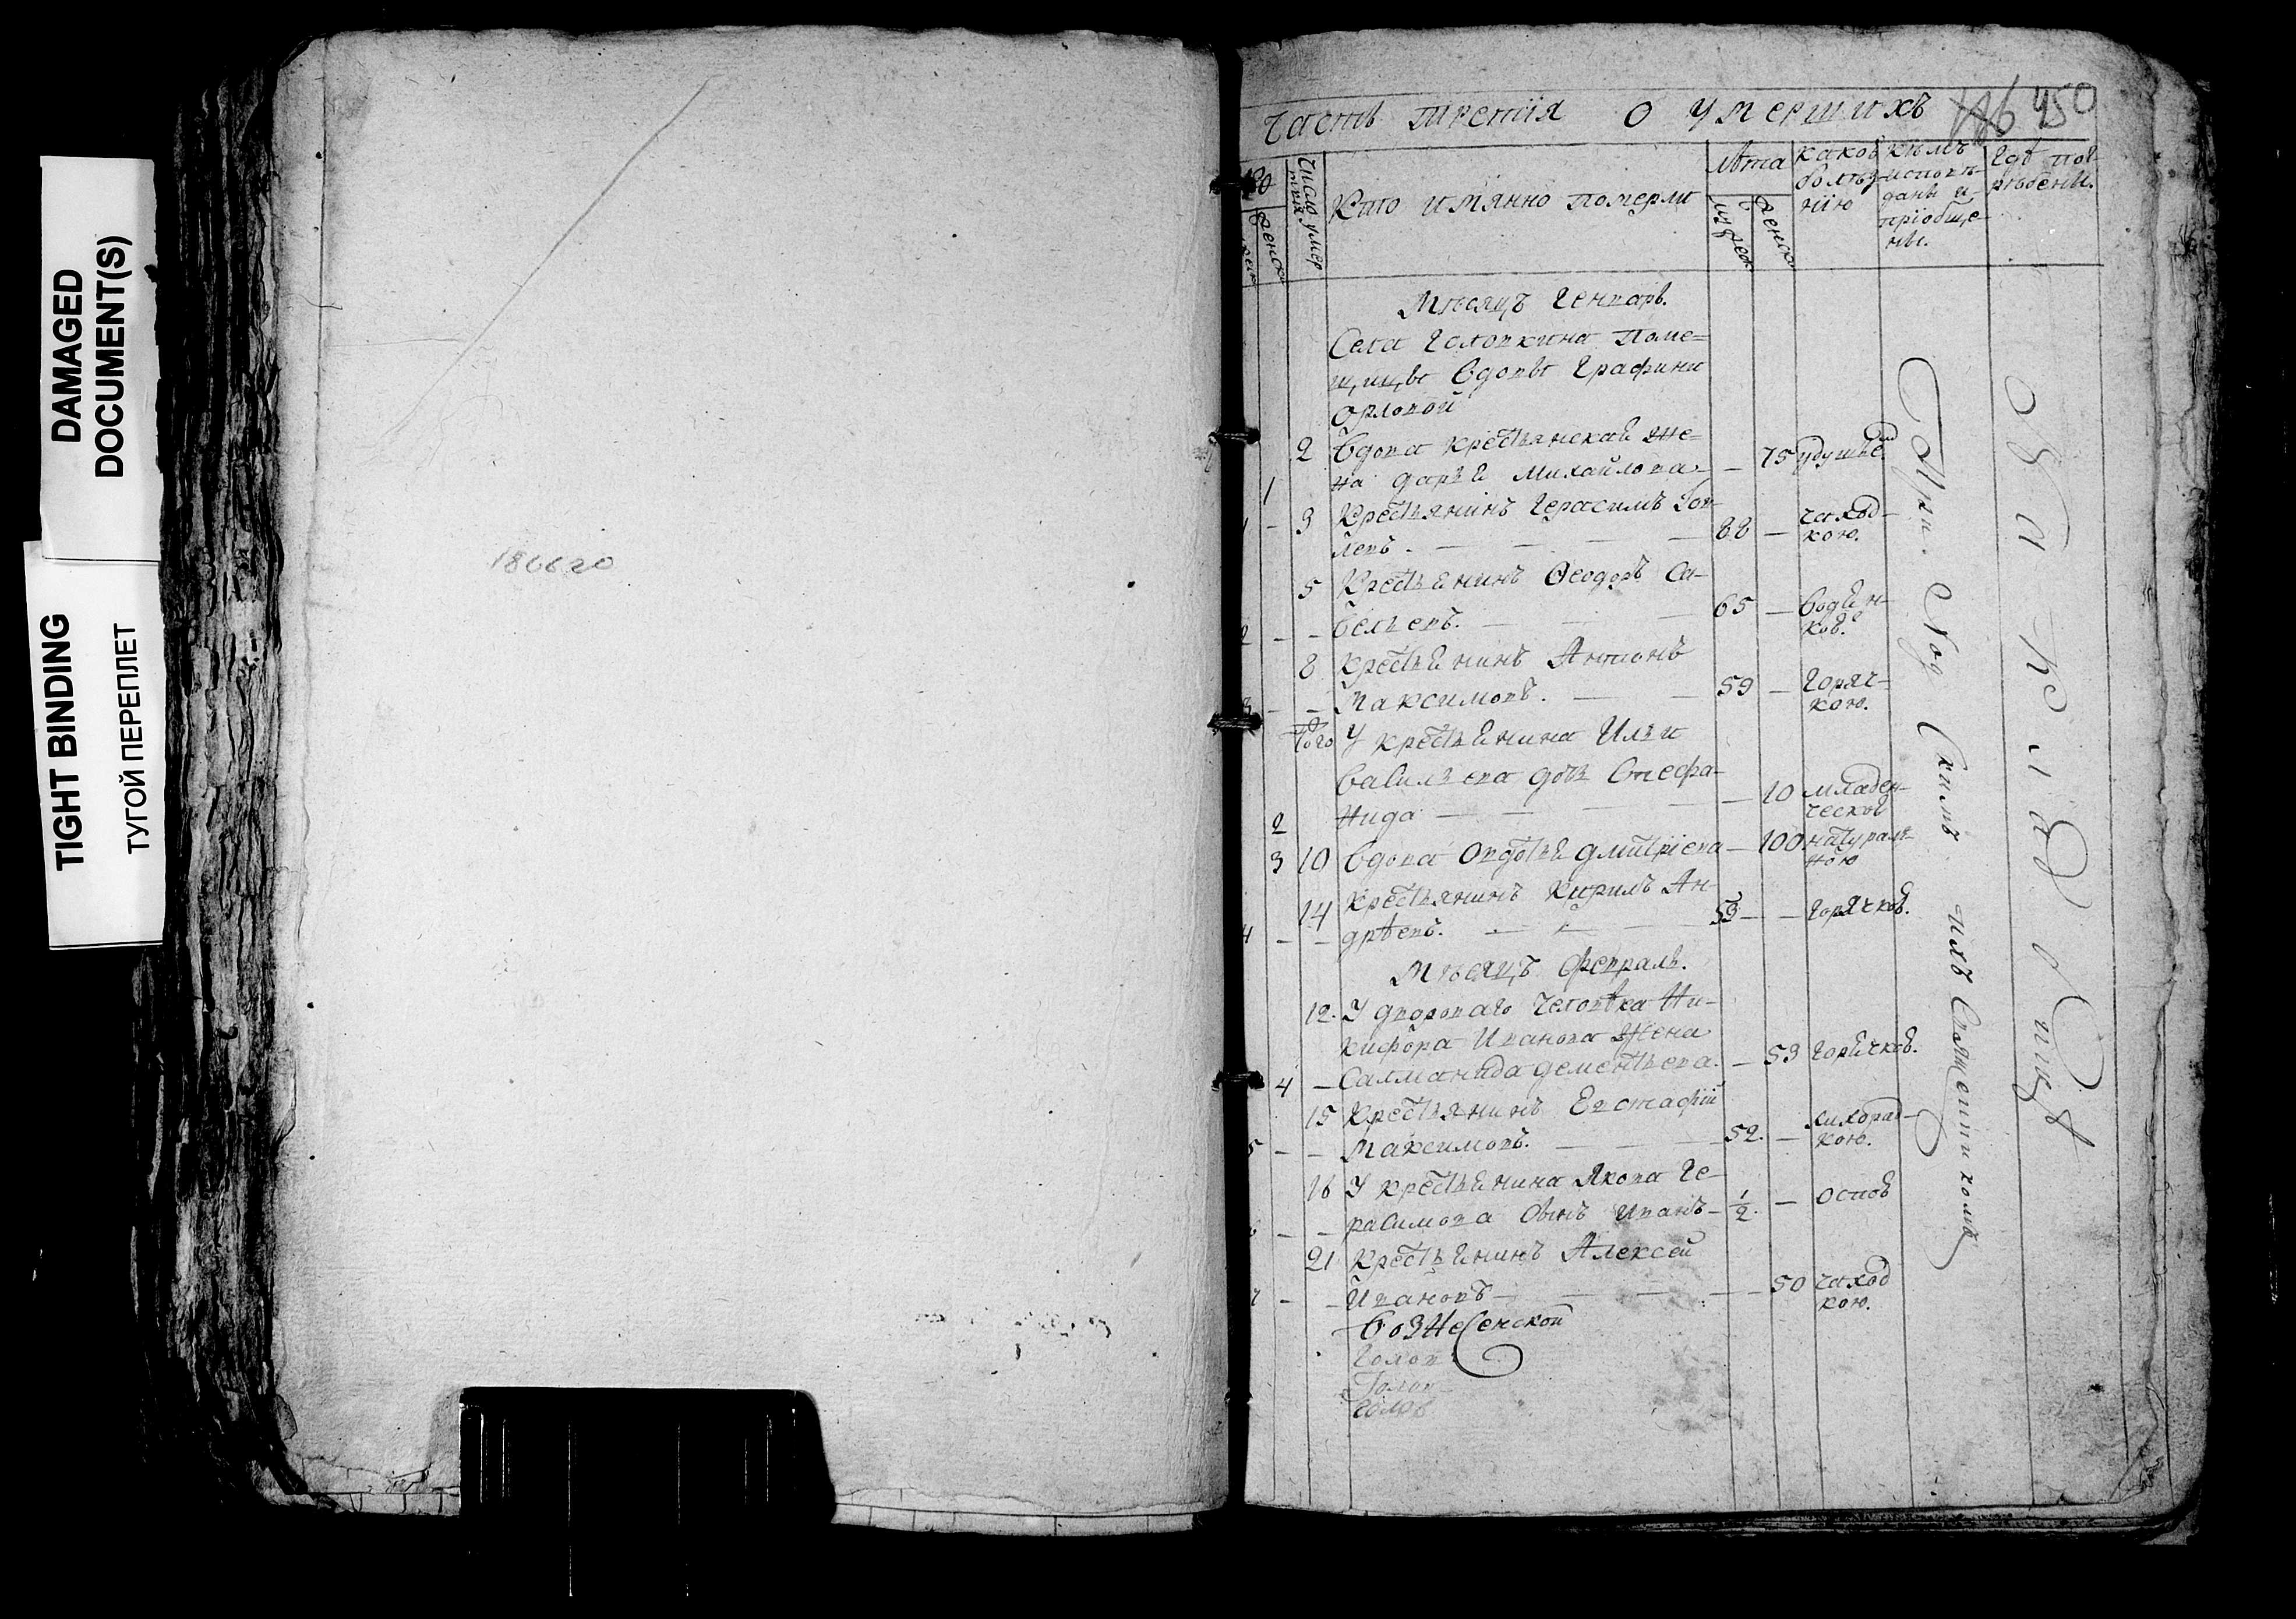 DAMAGED
DOCUMENT(S)
TIGHT BINDING
ТУГОЙ ПЕРЕПЛЕТ
186620
Часть третїя о умершихъ 450
Число умер
шихъ
женска
Кто имянно померли
Лѣта
мужеск
женска
какою
болѣз
нїю
кѣмъ
исповѣ-
даны и
прїобще-
ны.
Гдѣ пог
ребены.
Мѣсяцъ Генварь.
Села Головкина Поме=
щицы вдовы Графини
Орловой
2 вдова крестьянская же=
1 на дарья Михайлова — 75 удушьем
1 - 3 Крестьянинъ Герасимъ
левъ. — — — 88 — чаход-
кою.
5 Крестьянинъ Ѳеодоръ Са-
2 - - вельевъ. — — 65 — водян-
ков.
8 Крестьянинъ Антонъ
3 - - Максимовъ. — — 59 — Горяч=
кою.
того У крестьянина Ильи
Васильева дочь Стефа-
2 нида — — — 10 младен-
ческой
3 10 вдова Овдотья дмитрїева — 100 натураль-
ною
14 Крестьянинъ Кирилъ Ан-
4 - - дрѣевъ. — — 53 — — горячков.
Мѣсяцъ Февраль.
12. У двороваго человѣка Ни-
кифора Иванова жена
4 — Салманида дементьева. — 53 Горячков.
15 Крестьянинъ Евстафїй
5 - - Максимовъ. — — 52. — лихорад-
кою.
16 У крестьянина Якова Ге-
6 - - расимова сынъ Иванъ — 1/2. — оспов
21 Крестьянинъ Алексей
7 - - Ивановъ — — — 50 чаход
кою.
Вознесенской
Голов
Голов-
Голов
При
Священникомъ
На кладбищѣ